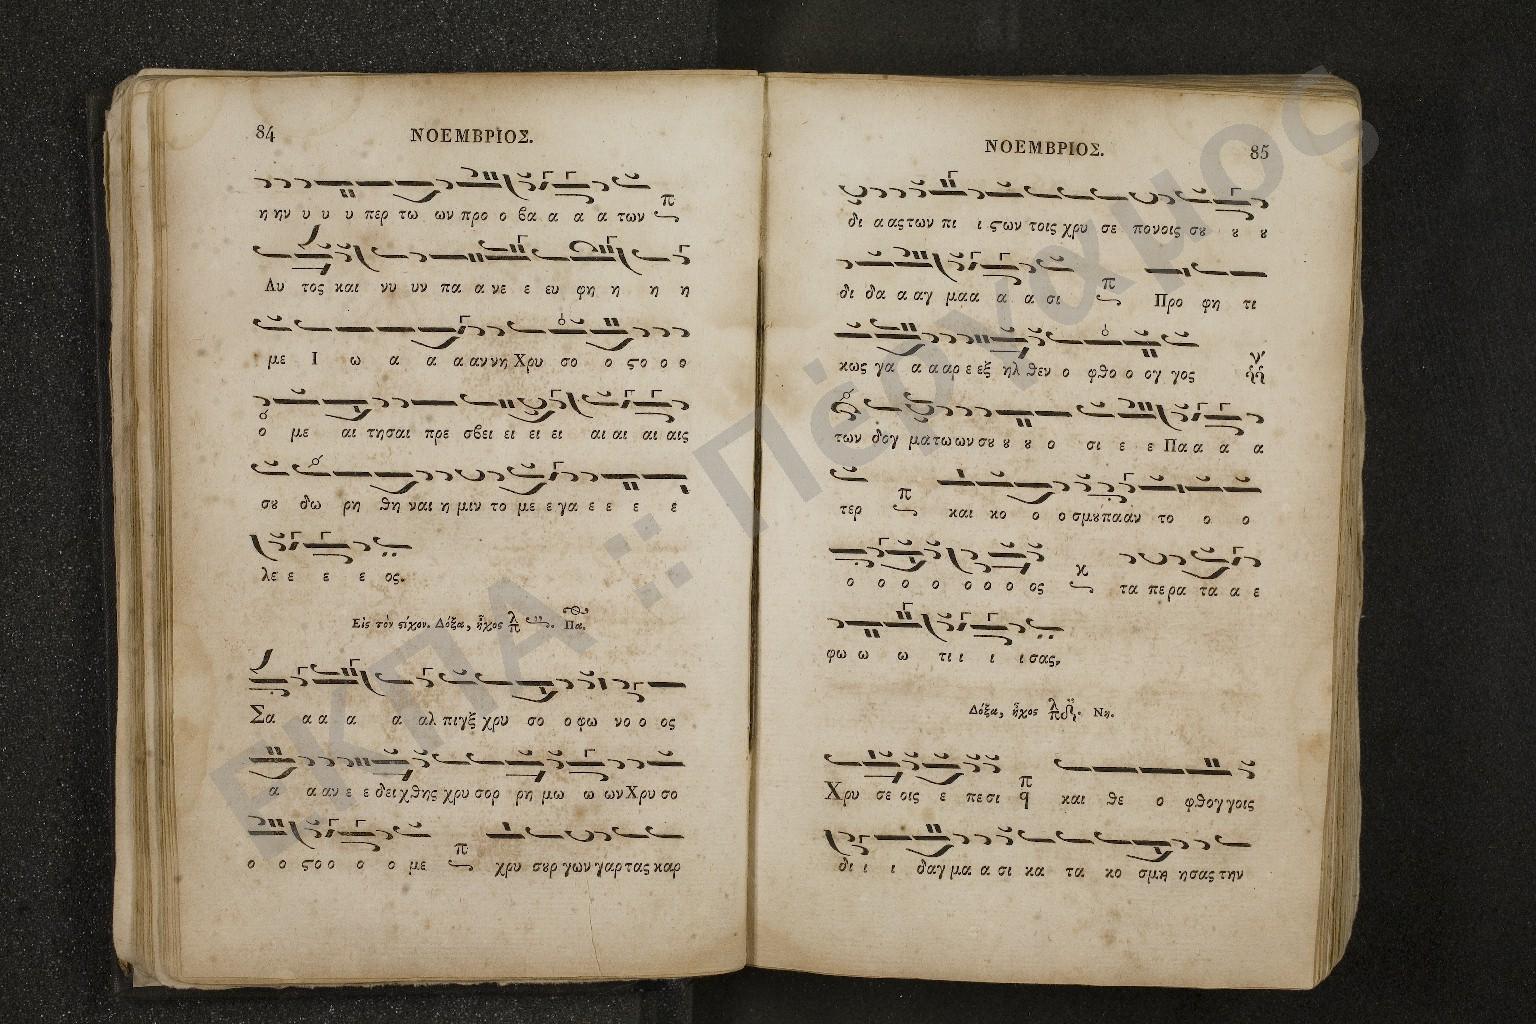 84
ΝΟΕΜΒΡΙΟΣ.
η ην υ υ υ περ τω ων προ ο βα α α α των
Αυ τος και νυ υν πα α νε ε ευ φη η η η
με Ι ω α α α αν νη Χρυ σο ο ϛο ο ο
ο με αι τησαι πρε σβει ει ει ει αι αι αι αις
σȣ δω ρη θη ναι η μιν το με ε γα ε ε ε ε
λε ε ε ε ος.
Εἰς τὸν ϛίχον. Δόξα, ἦχος λ π Πα.
Σα α α α α αλ πιγξ χρυ σο ο φω νο ο ος
α α αν ε ε δει χθης χρυ σορ ρη μω ω ων Χρυ σο
ο ο ϛο ο ο ο με π χρυ σȣρ γων γαρ τας καρ
ΝΟΕΜΒΡΙΟΣ.
85
δι α ας των πι ι ϛων τοις χρυ σε πονοις σȣ ȣ ȣ
δι δα α αγ μα α α α σι π Προ φη τι
κως γα α α αρ ε εξ ηλ θεν ο φθο ο ογ γος
των δογ μα τω ων σȣ ȣ ȣ ο σι ε ε Πα α α α
τερ π και κο ο ο σμȣ παάν το ο ο
ο ο ο ο ο ο ο ος κ τα περα τα α ε
φω ω ω τι ι ι ι σας.
Δόξα, ἦχος λ π Νη.
Χρυ σε οις ε πε σι π q και θε ο φθογ γοις
δι ι ι δαγ μα α σι κα τα κο σμη ησας την
ΕΚΠΑ :: Πέργαμος